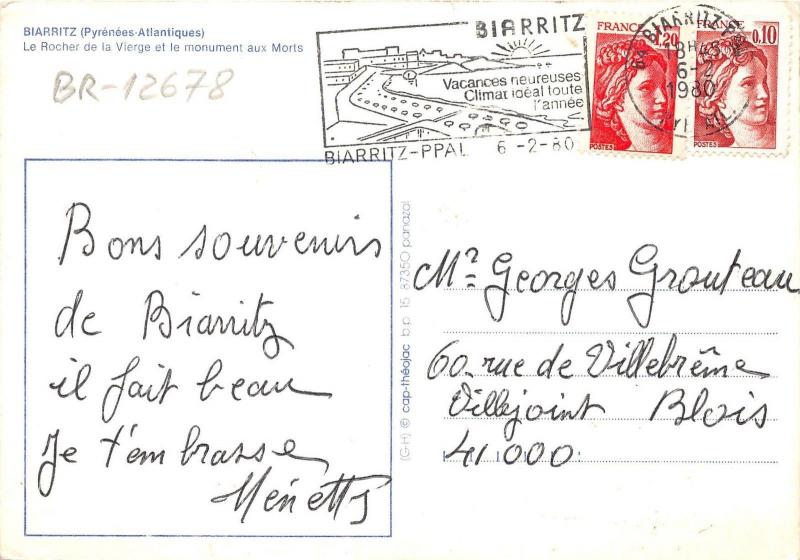 BIARRITZ (Pyrénées-Atlantiques)
Le Rocher de la Vierge et le monument aux Morts
BR-12678
BIARRITZ
Vacances heureuses
Climat idéal toute
l'année
BIARRITZ-PPAL 6-2-80
FRANCE
1,20
POSTES
FRANCE
0,10
POSTES
64 BIARRITZ PPAL
18H45
6-2
1980
Bons souvenirs
de Biarritz
il fait beau
Je t'embrasse
(G-H) © cap-théojac b.p. 15 87350 panazol
Mr Georges Grouteau
60 rue de Villebrême
Villejoint Blois
41000